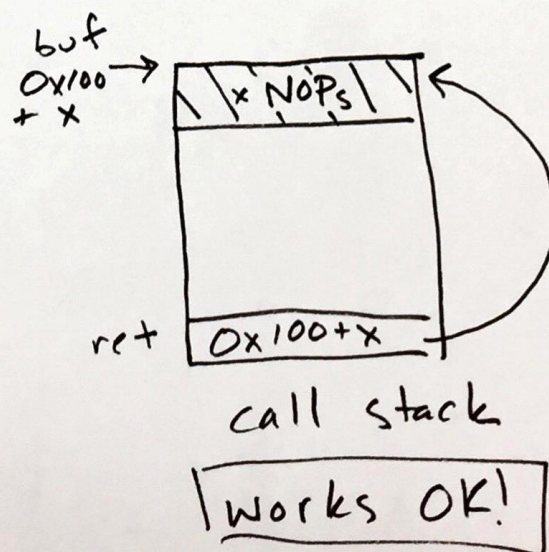 buf
0x100
+ x
x NOPs
ret
0x100+x
call stack
works OK!